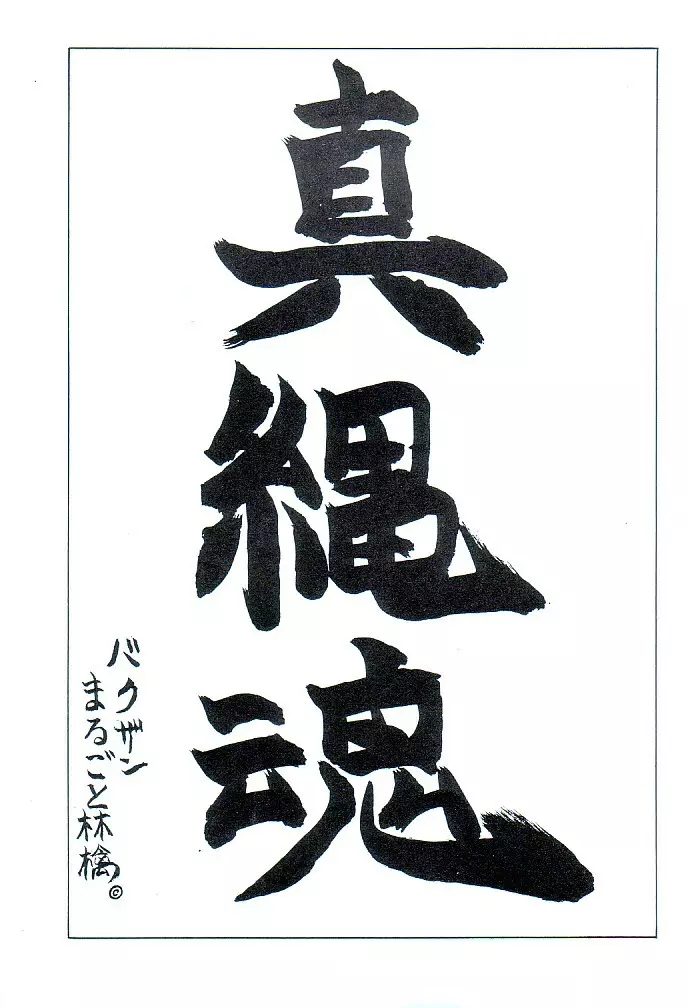 真縄魂
バクザン
まるごと林檎©